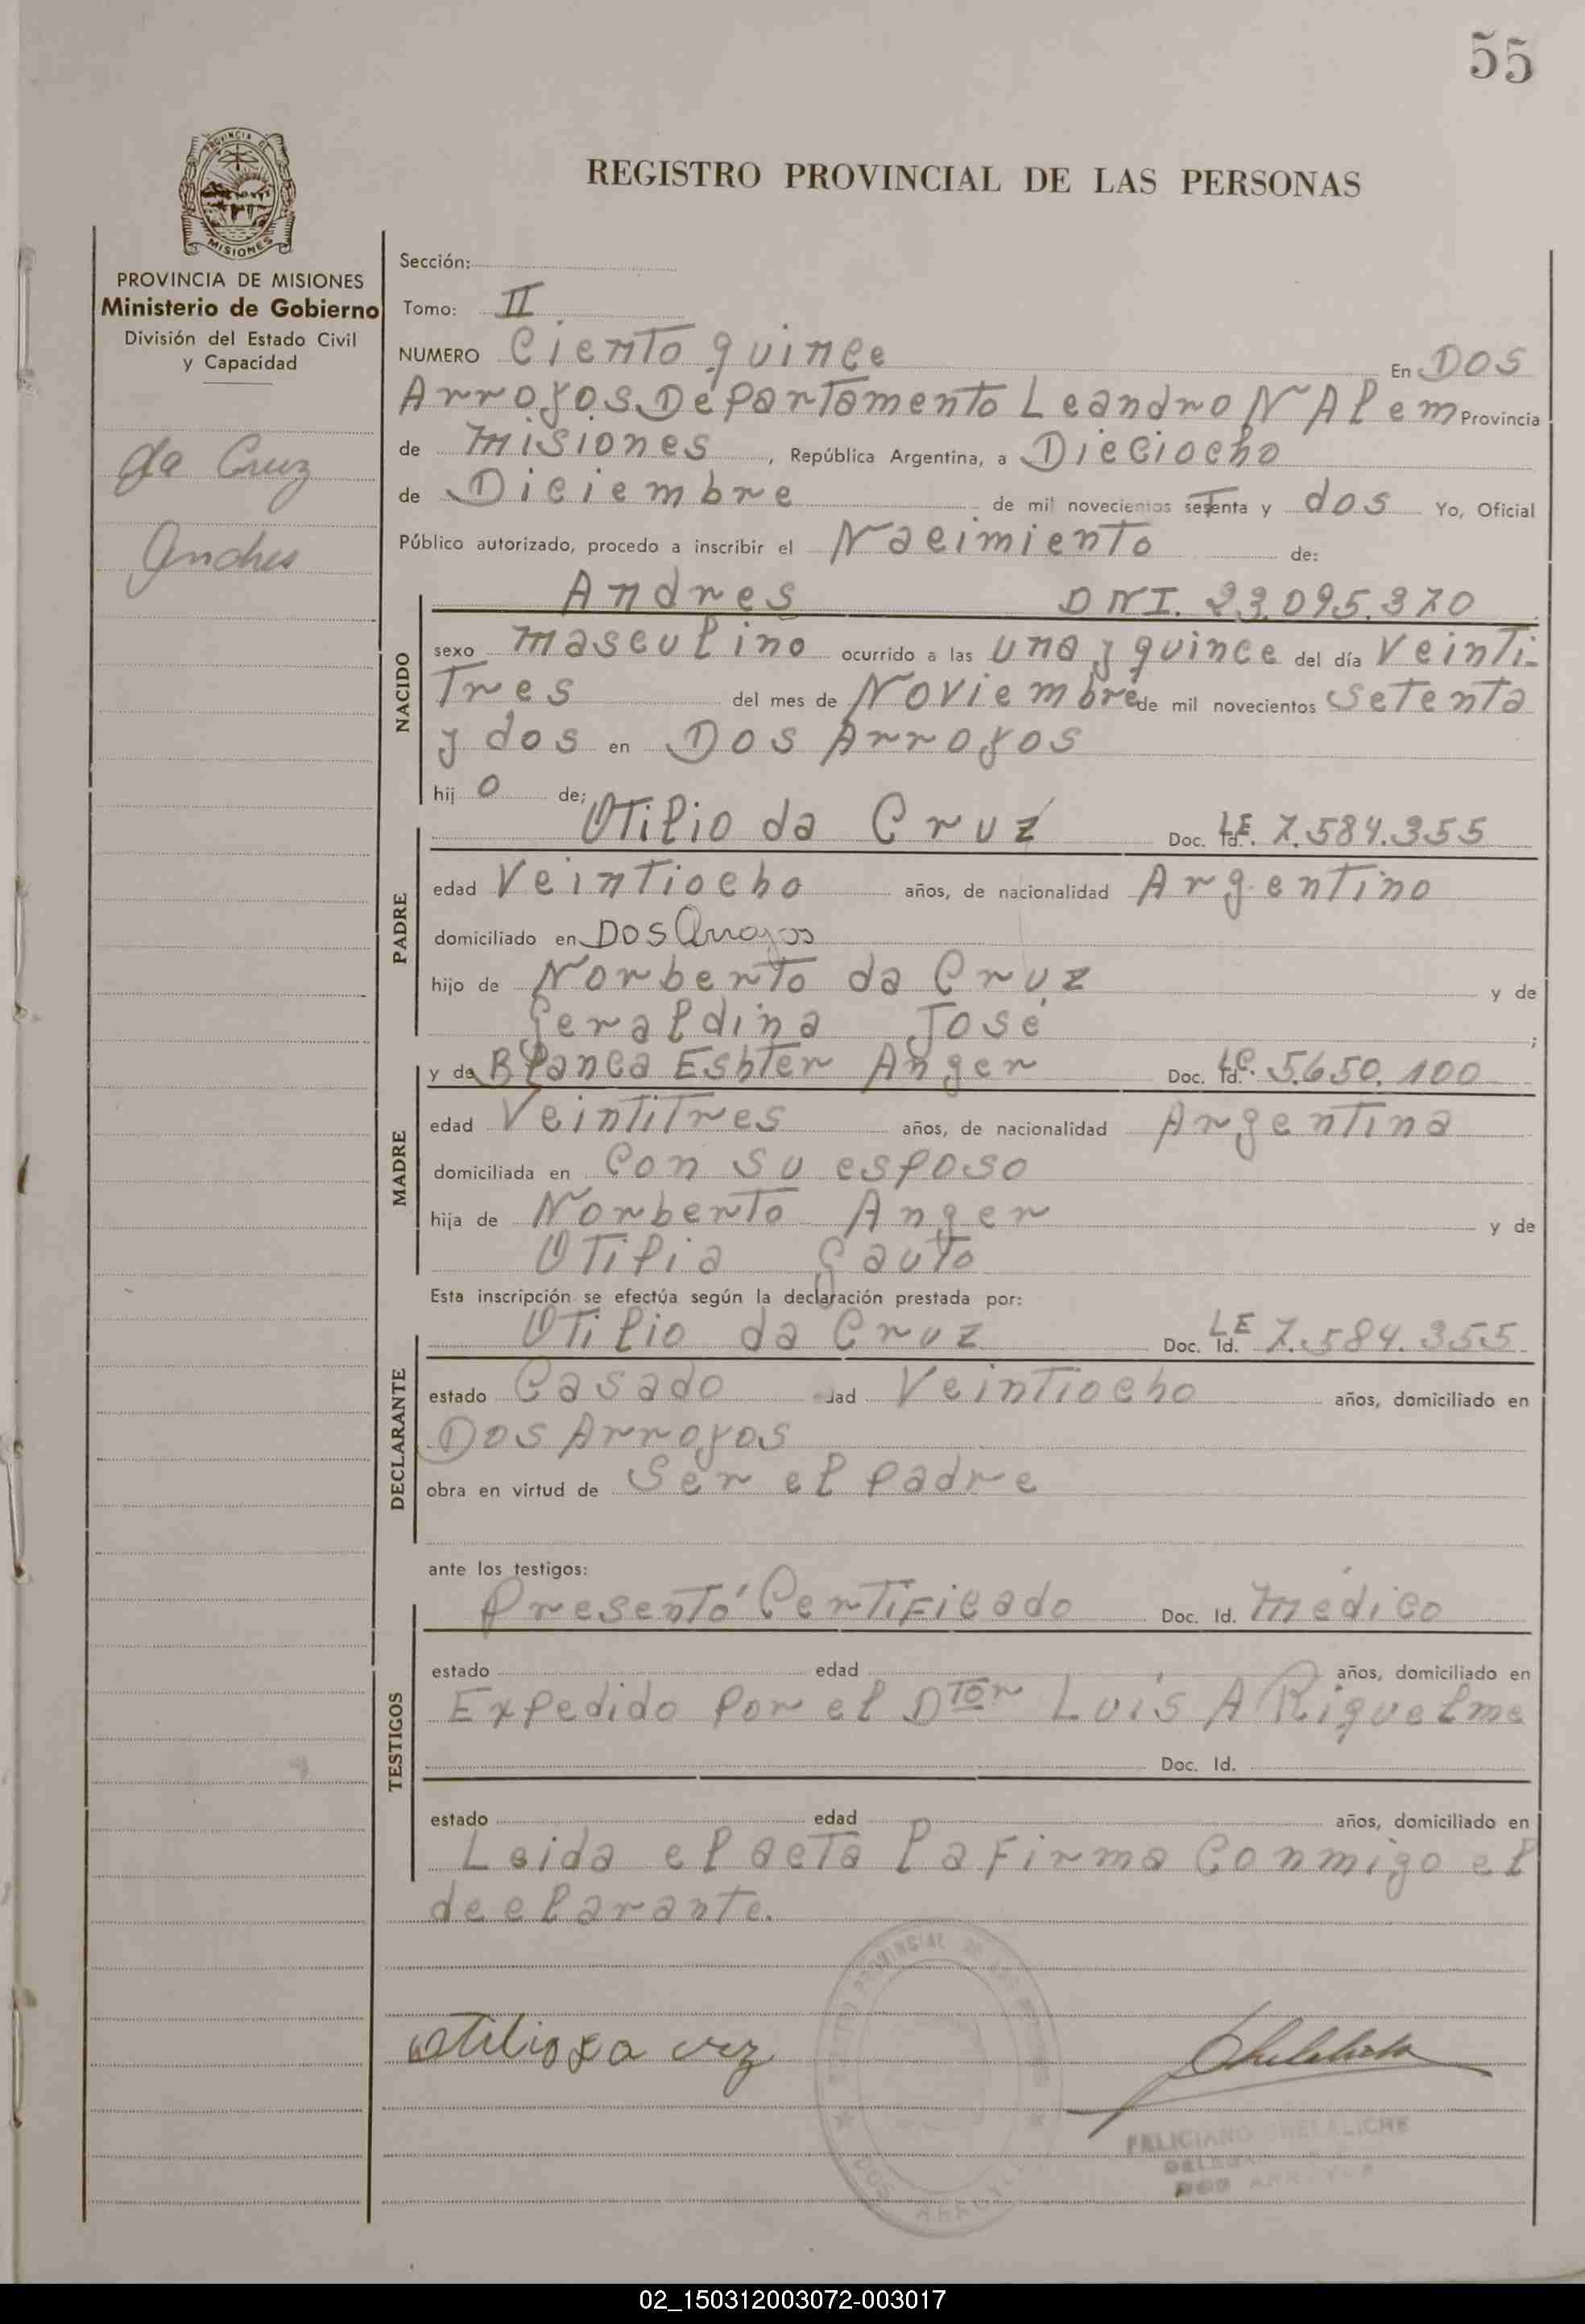 55
REGISTRO PROVINCIAL DE LAS PERSONAS
PROVINCIA DE MISIONES
Ministerio de Gobierno
División del Estado Civil
y Capacidad
da Cruz
Andres
Sección:
Tomo: II
NUMERO Ciento quince En Dos
Arroyos Departamento Leandro N Alem Provincia
de Misiones, República Argentina, a Dieciocho
de Diciembre de mil novecientos setenta y dos Yo, Oficial
Público autorizado, procedo a inscribir el Nacimiento de:
Andres DNI. 23.095.370
NACIDO
sexo masculino ocurrido a las una y quince del día Veinti-
Tres del mes de Noviembre de mil novecientos setenta
y dos en Dos Arroyos
hijo de;
PADRE
Otilio da Cruz Doc. Id. LE. 7.584.355
edad Veintiocho años, de nacionalidad Argentino
domiciliado en Dos Arroyos
hijo de Norberto da Cruz y de
Geraldina José;
MADRE
y de Blanca Eshter Anger Doc. Id. LC. 5.650.100
edad Veintitres años, de nacionalidad Argentina
domiciliada en Con su esposo
hija de Norberto Anger y de
Otilia Gauto
Esta inscripción se efectúa según la declaración prestada por:
DECLARANTE
Otilio da Cruz Doc. Id. LE 7.584.355
estado Casado edad Veintiocho años, domiciliado en
Dos Arroyos
obra en virtud de Ser el padre
ante los testigos:
TESTIGOS
Presentó Certificado Doc. Id. médico
estado edad años, domiciliado en
Expedido por el Dtor Luis A Riquelme
Doc. Id.
estado edad años, domiciliado en
Leida el acta la firma Conmigo el
declarante.
otilio da cruz
FELICIANO
DOS ARROYOS
02_150312003072-003017